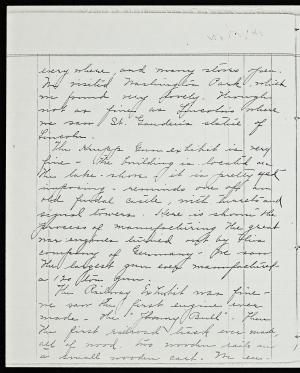 every where, and many stores open.
We visited Washington Park, which
we found very lovely, though
not as fine as Lincoln's where
we saw St. Gaudens statue of
Lincoln.
The Krupp Gun exhibit is very
fine - The building is located on
the lake-shore & it is pretty yet
imposing - reminds one of an
old feudal castle, with turrets and
signal towers. Here is shown the
process of manufacturing the great
war engines turned out by this
company of Germany - We saw
the largest gun ever manufactured
a 120 ton gun.
The Railway Exhibit was fine -
we saw the first engine ever
made - the "Johnny Bull". Then
the first railroad track ever made
all of wood. Two wooden rails on
a small wooden cart. We